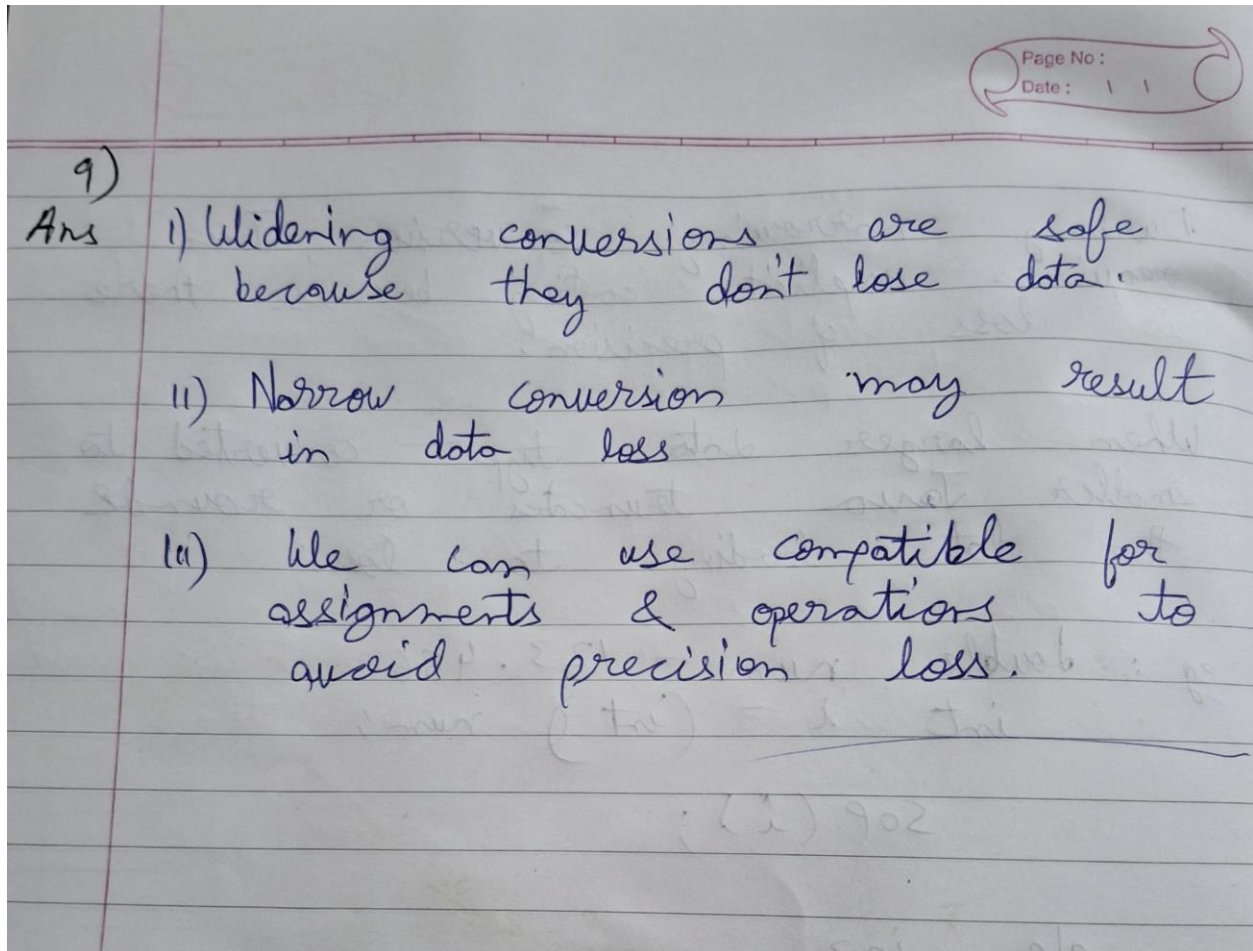 Page No :
Date : \ \
9)
Ans i) Widening conversions are safe
because they don't lose data.
ii) Narrow conversion may result
in data loss
iii) We can use compatible for
assignments & operations to
avoid precision loss.
int i = (int) num;
SOP(i);